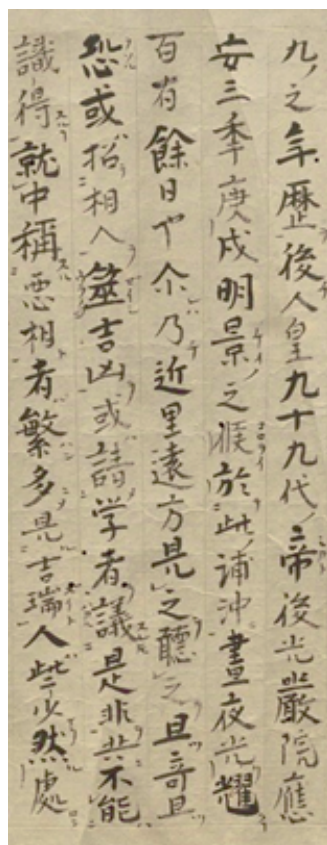 九ノ之年歴後人皇九十九代ノ帝後光嚴院應
安三季庚戌明景之候於此ノ浦沖晝夜光耀
百有餘日也尒乃近里遠方見之聽之且奇且
恐或招相人筮吉凶或請学者議是非共不能
識得就中稱悪相者繁多見吉瑞人些少然處